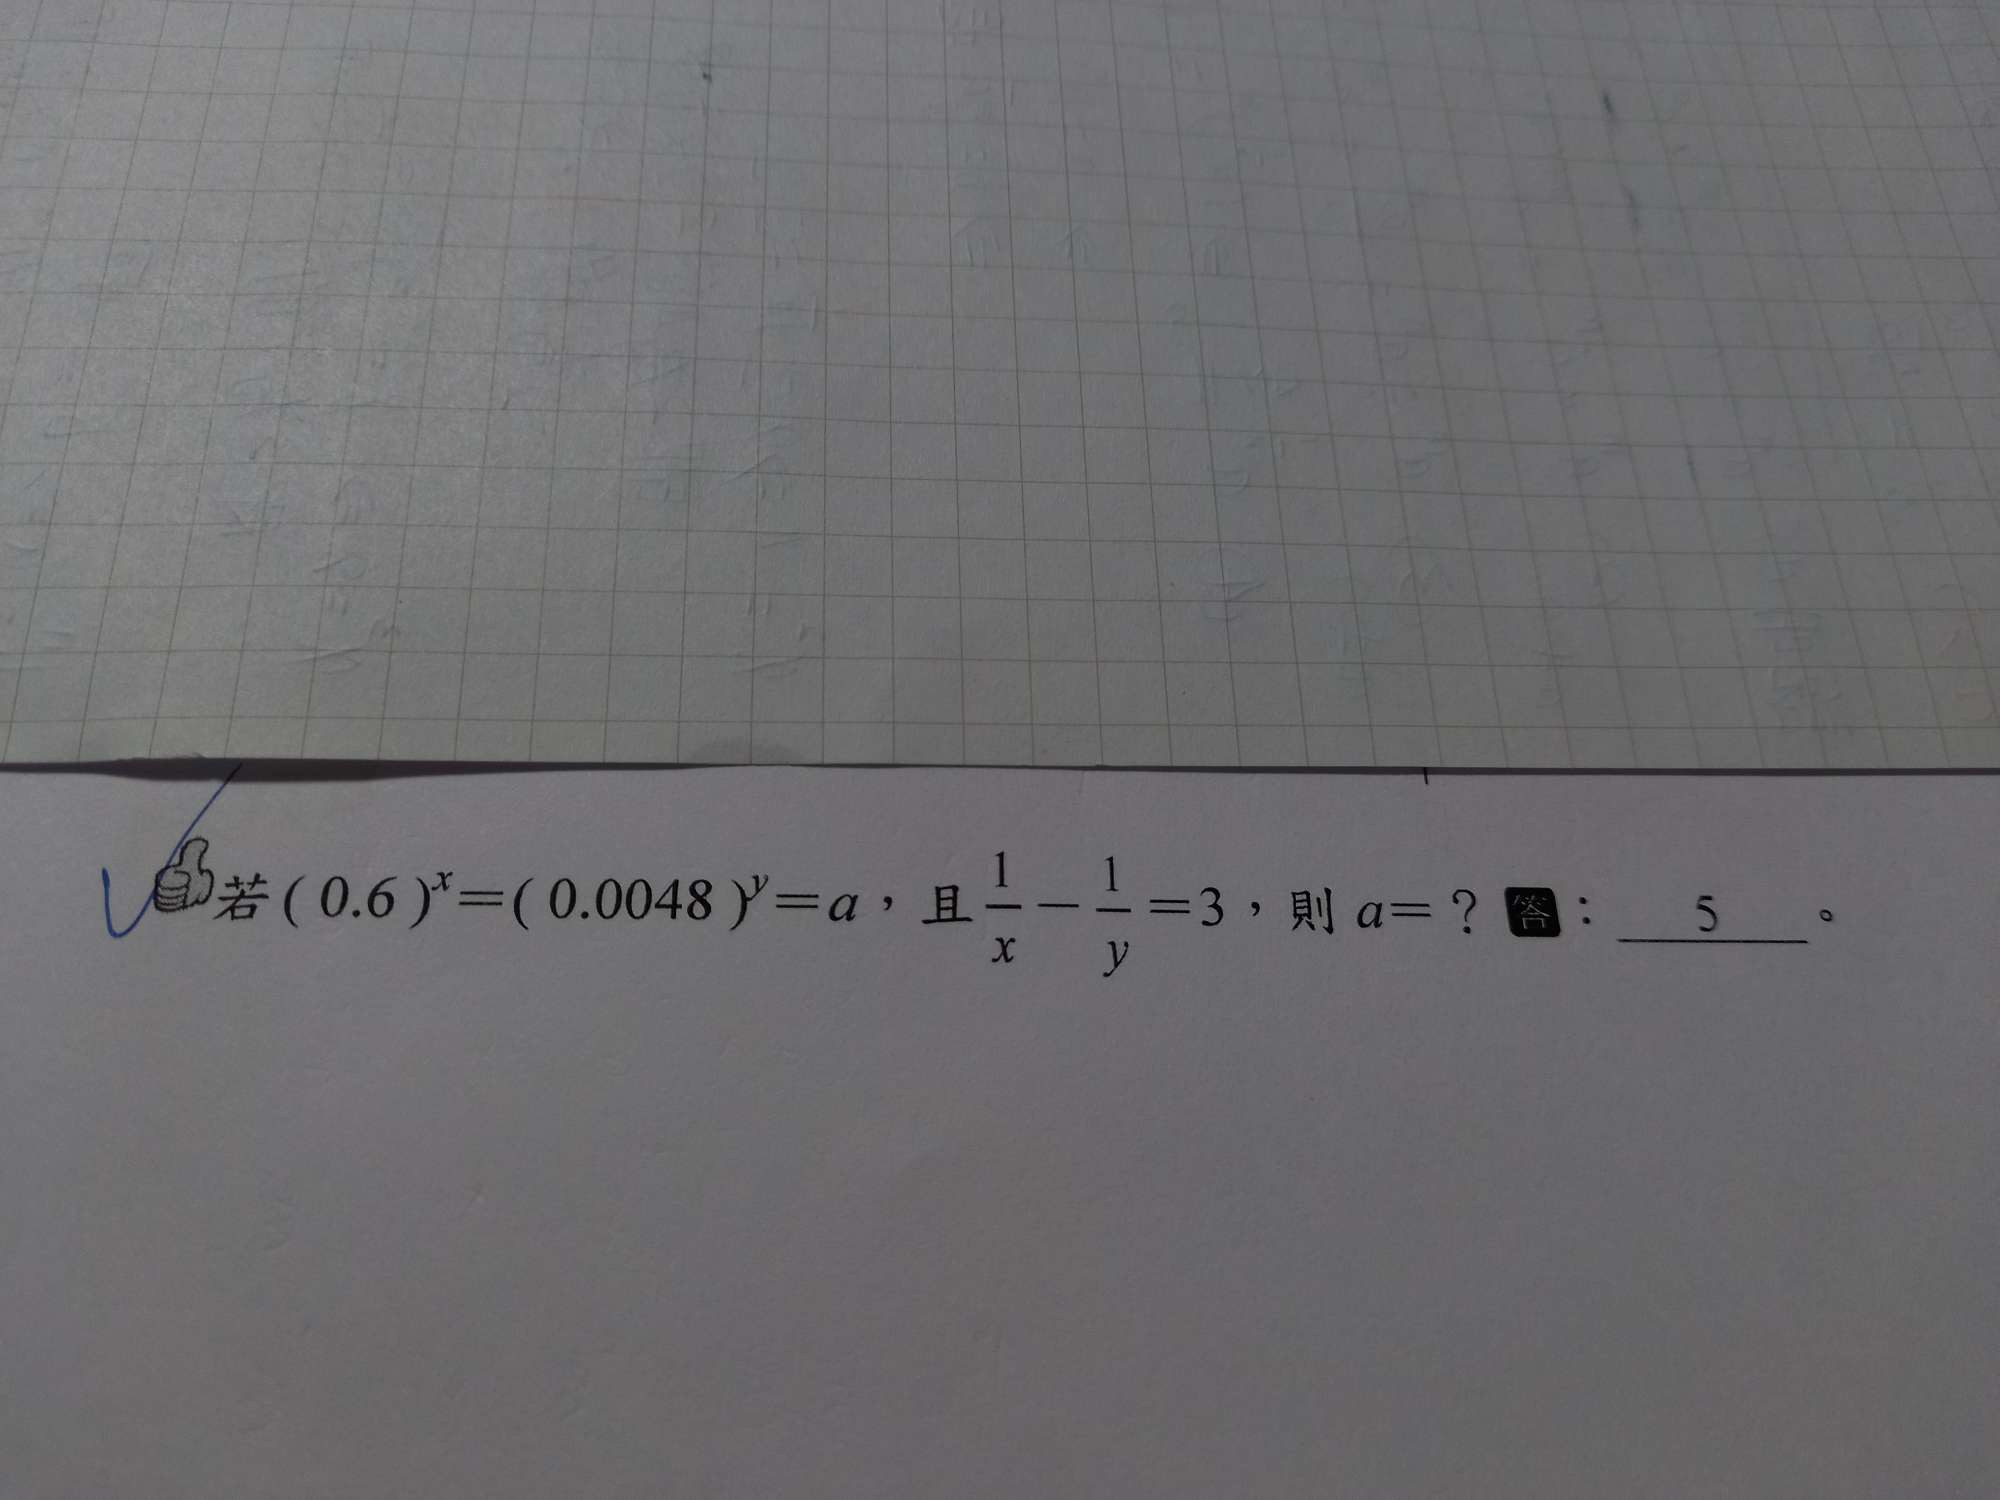 若(0.6)^x=(0.0048)^y=a，且1/x-1/y=3，則a=？答：5。